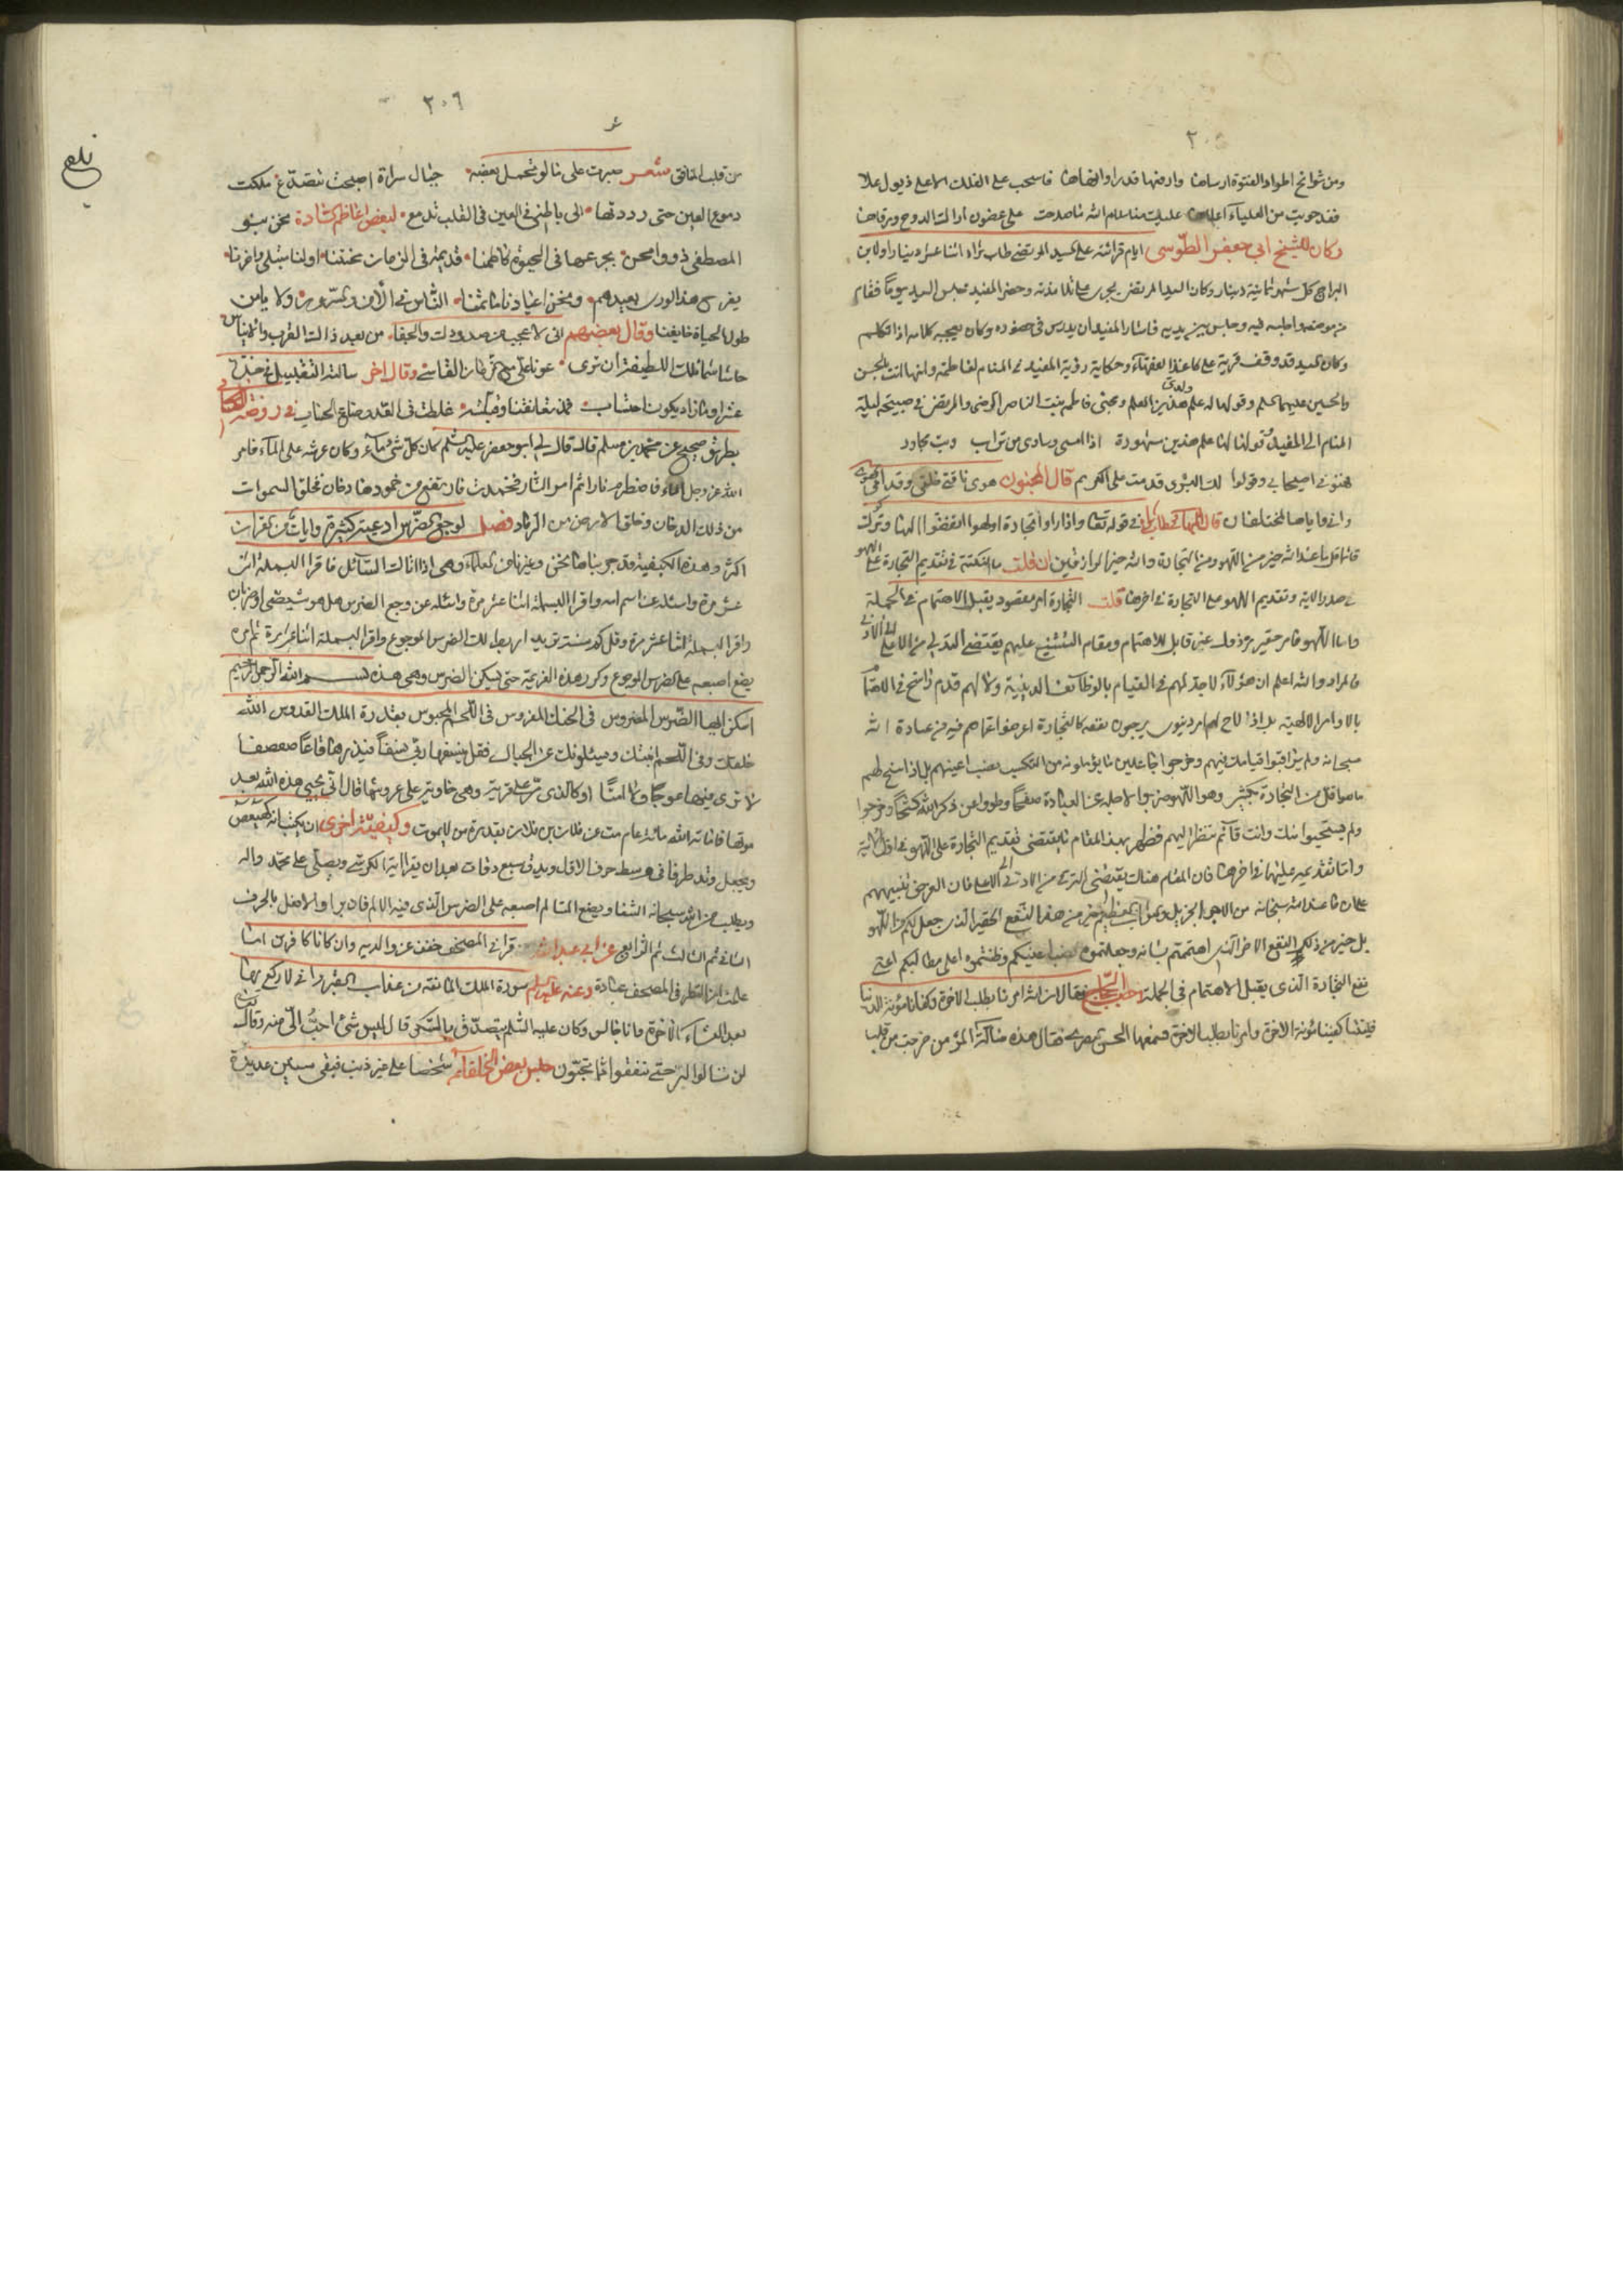 ٢٠٥
ومن شوامخ اطواد الفتوة ارساها وارفعها قدرا وانهاها فاسحب على الفلك الاعلى ذيول علا
فقد حويت من العلياء اعلاها عليك منا سلام الله ما صدحت على غصون اراك الدوح ورقاها
وكان للشيخ ابي جعفر الطوسى ايام قرائته على السيد المرتضى طاب ثراه اثنا عشر دينارا ولابن
البراج كل شهر ثمانية دينار وكان السيد المرتضى يجرى على تلامذته وحضر المفيد مجلس السيد يوما فقام
من موضعه واجلسه فيه وجلس بين يديه فاشار المفيد ان يدرس فى حضوره وكان يعجبه كلامه اذا تكلم
وكان السيد قد وقف قرية على كاغذ الفقهاء وحكاية رؤية المفيد فى المنام لفاطمة وانها اتت بالحسن
والحسين عليهما السلم وقولها له علم ولدى هذين العلم ومجئى فاطمه بنت الناصر بالرضى والمرتضى فى صبيحة ليلة
المنام الى المفيد وقولها له علم هذين مشهورة اذا امسى وسادى من تراب وبت مجاور
فهنونى اصيحابى وقولوا لك البشرى قدمت على الكريم قال المجنون هوى ناقتى خلفى وقدامى الهوى
وانى واياها لمختلفان قال فى قوله تعالى واذا راوا تجارة او لهوا انفضوا اليها وتركوك
قائما قل ما عند الله خير من اللهو ومن التجارة والله خير الرازقين ان قلت ما النكتة فى تقديم التجارة على اللهو
فى صدر الاية وتقديم اللهو على التجارة فى اخرها قلت التجارة امر مقصود يقبل الاهتمام فى الجملة
واما اللهو فامر حقير مرذول غير قابل للاهتمام ومقام التشنيع عليهم يقتضى الترقى من الاعلى الى الادنى
فالمراد والله اعلم ان هؤلاء لا جد لهم فى القيام بالوظائف الدينية ولا لهم قدم راسخ فى الاهتمام
بالاوامر الالهية بل اذا لاح لهم امر دنيوى يرجون نفعه كالتجارة اعرضوا عما هم فيه من عبادة الله
سبحانه ولم يراقبوا قيامك فيهم وخرجوا جاعلين ما يؤملونه من التكسب نصب اعينهم بل اذا سنح لهم
ما هو اقل من التجارة بكثير وهو اللهو ضربوا لاجله عن العبادة صفحا وطووا عن ذكر الله كشحا وخرجوا
ولم يستحيوا منك وانت قائم تنظر اليهم فظهر بهذا المقام ما يقتضى تقديم التجارة على اللهو فى اول الاية
واما تقديمه عليها فى اخرها فان المقام هناك يقتضى الترقى من الادنى الى الاعلى فان الغرض تنبيههم
على ان ما عند الله سبحانه من الاجر الجزيل والثواب العظيم خير من هذا النفع الحقير الذى جعل لكم من اللهو
بل خير من ذلك النفع الاخر الذى اهتممتم بشانه وجعلتموه نصب اعينكم وظننتموه اعلى مطالبكم اعنى
نفع التجارة الذى يقبل الاهتمام فى الجملة خطب الحجاج فقال ان الله امرنا بطلب الاخرة وكفانا مؤنة الدنيا
فليتنا كفينا مؤنة الاخرة وامرنا بطلب الدنيا فسمعها الحسن البصرى فقال هذه ضالة المؤمن خرجت من قلب
٢٠٦
من قلب المنافق شعر صبرت على ما لو تحمل بعضه جبال سراة اصبحت تتصدع ملكت
دموع العين حتى رددتها الى باطنى فى العين فى القلب تدمع لبعض اعاظم السادة نحن بنو
المصطفى ذووا محن يجرعها فى الحيوة كاظمنا قديمة فى الزمان محنتنا اولنا مبتلى واخرنا
يفرح هذا الورى بعيدهم ونحن اعيادنا ماتمنا الناس فى الامن والسرور ولا يامن
طول الحياة خايفنا وقال بعضهم انى لاعجب من صدودك والجفا من بعد ذاك القرب والايناس
حاشا شمائلك اللطيفة ان ترى عونا على مع الزمان القاسى وقال اخر سالته التقبيل فى خده
عشرا وما زاد يكون احتساب فمذ تعانقنا وقبلته غلطت فى العد وضاع الحساب فى روضة الكافى
بطريق صحيح عن محمد بن مسلم قال قال لى ابو جعفر عليه السلم كان كل شئ ماء وكان عرشه على الماء فامر
الله عز وجل الماء فاضطرم نارا ثم امر النار فخمدت فارتفع من خمودها دخان فخلق السموات
من ذلك الدخان وخلق الارض من الرماد فصل لوجع الضرس ادعية كثيرة وايات من القران
اكثر وهذه الكيفية قد جربناها نحن وغيرنا من العلماء وهى اذا اتاك السائل فاقرا البسملة اثنى
عشر مرة واسئله عن اسم امه واقرا البسملة اثنا عشر مرة واسئله عن وجع الضرس هل هو شيصى او ضربان
واقرا البسملة اثنا عشر مرة وقل كم سنة تريد اربط لك الضرس الموجوع واقرا البسملة اثنا عشر مرة ثم مره
يضع اصبعه على الضرس الموجوع وكرر هذه العزيمة حتى يسكن الضرس وهى هذه بسم الله الرحمن الرحيم
اسكن ايها الضرس المضروس فى الحنك المغروس فى اللحم المحبوس بقدرة الملك القدوس الله
خلقك وفى اللحم انبتك ويسئلونك عن الجبال فقل ينسفها ربى نسفا فيذرها قاعا صفصفا
لا ترى فيها عوجا ولا امتا او كالذى مر على قرية وهى خاوية على عروشها قال انى يحيى هذه الله بعد
موتها فاماته الله مائة عام مت عن فلان بن فلان بقدرة من لا يموت وكيفية اخرى ان يكتب كهيعص
ويجعل وتد طرفا فى وسط حرف الاول ويدق سبع دقات بعد ان يقرا اية الكرسى ويصلى على محمد واله
ويطلب من الله سبحانه الشفا ويضع المتالم اصبعه على الضرس الذى فيه الالم فان برا والا فعل بالحرف
الثانى ثم الثالث ثم الرابع عن ابى عبد الله من قرا فى المصحف خفف عن والديه وان كانا كافرين اما
علمت ان النظر فى المصحف عبادة وعنه عليه السلم سورة الملك المانعة من عذاب القبر وانى لاركع بها
بعد العشاء الاخرة وانا جالس وكان عليه السلم يتصدق بالسكر قال ليس شئ احب الى منه وقال تعالى
لن تنالوا البر حتى تنفقوا مما تحبون حبس بعض الخلفاء شخصا على غير ذنب فبقى سنين عديدة
بلغ